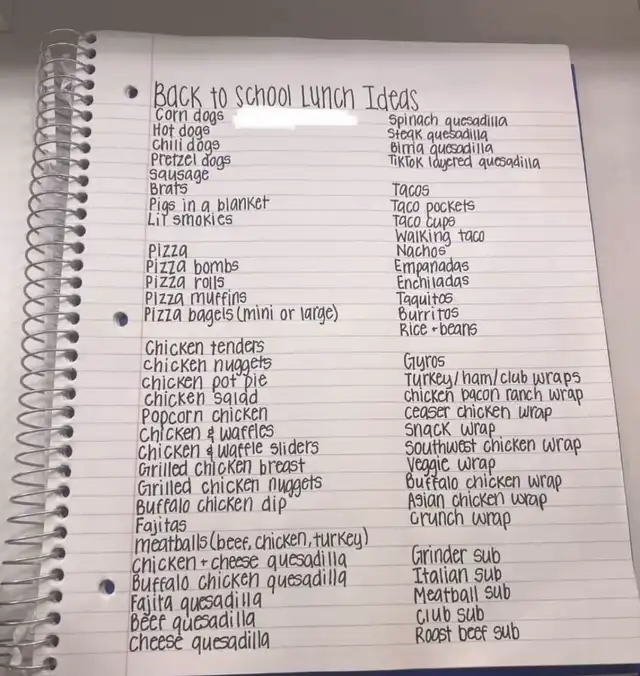 Back to School Lunch Ideas
Corn dogs
Hot dogs
Chili dogs
Pretzel dogs
Sausage
Brats
Pigs in a blanket
Lil smokies
Pizza
Pizza bombs
Pizza rolls
Pizza muffins
Pizza bagels (mini or large)
Chicken tenders
Chicken nuggets
Chicken pot pie
Chicken salad
Popcorn chicken
Chicken & waffles
Chicken & waffle sliders
Grilled chicken breast
Grilled chicken nuggets
Buffalo chicken dip
Fajitas
Meatballs (beef, chicken, turkey)
Chicken + cheese quesadilla
Buffalo chicken quesadilla
Fajita quesadilla
Beef quesadilla
Cheese quesadilla
Spinach quesadilla
Steak quesadilla
Birria quesadilla
TikTok layered quesadilla
Tacos
Taco pockets
Taco cups
Walking taco
Nachos
Empanadas
Enchiladas
Taquitos
Burritos
Rice + beans
Gyros
Turkey/ham/club wraps
Chicken bacon ranch wrap
Ceaser chicken wrap
Snack wrap
Southwest chicken wrap
Veggie wrap
Buffalo chicken wrap
Asian chicken wrap
Crunch wrap
Grinder sub
Italian sub
Meatball sub
Club sub
Roast beef sub